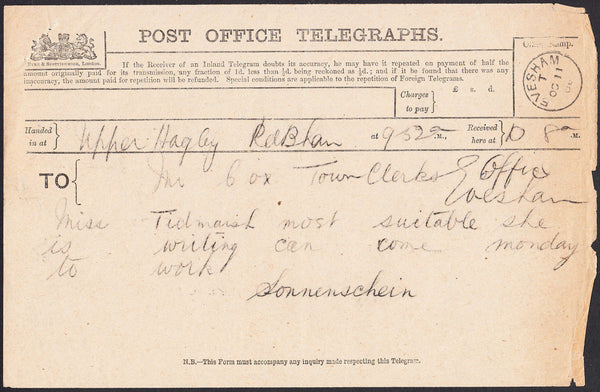 POST OFFICE TELEGRAPHS.
If the Receiver of an Inland Telegram doubts its accuracy, he may have it repeated on payment of half the
amount originally paid for its transmission, any fraction of 1d. less than ½d. being reckoned as ½d.; and if it be found that there was any
inaccuracy, the amount paid for repetition will be refunded. Special conditions are applicable to the repetition of Foreign Telegrams.
Office Stamp.
EVESHAM
OC 11
Charges to pay } £ s. d.
Handed in at } Upper Hagley Rd Bham at 9 52 a M., Received here at } 10 8 a M.
TO { Mr Cox Town Clerks Office
Evesham
Miss Tidmarsh most suitable she
is writing can come monday
to work
Sonnenschein
N.B.—This Form must accompany any inquiry made respecting this Telegram.